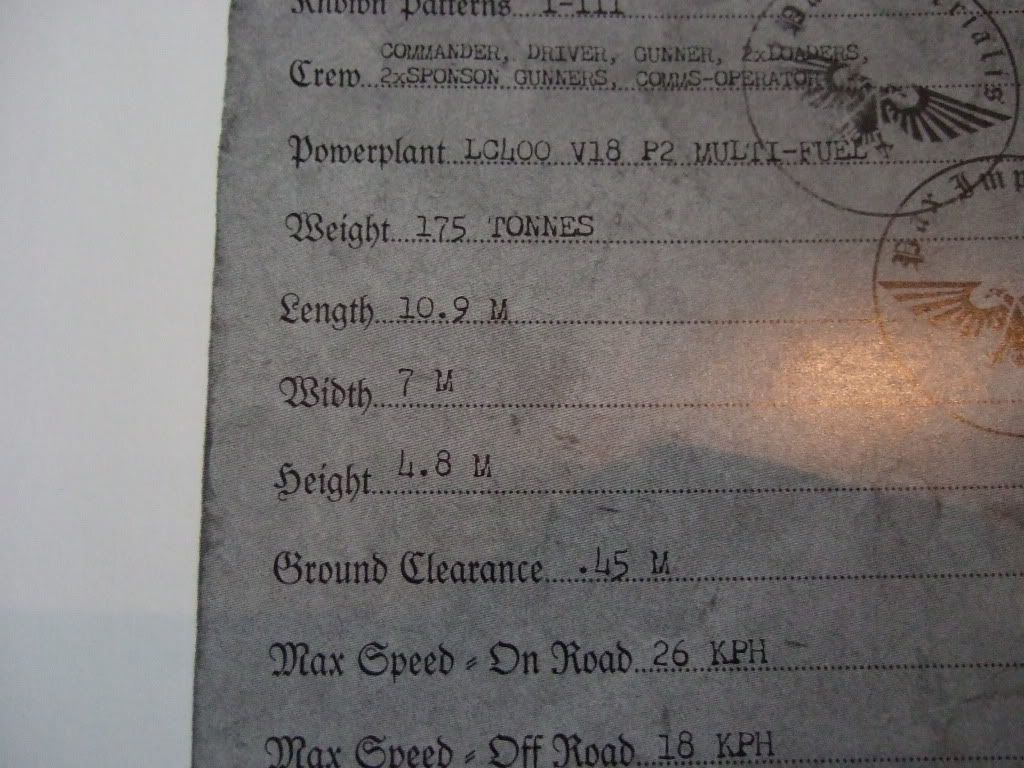 Known Patterns I-III
COMMANDER, DRIVER, GUNNER, 2xLOADERS,
Crew 2xSPONSON GUNNERS, COMMS-OPERATOR
Powerplant LC400 V18 P2 MULTI-FUEL
Weight 175 TONNES
Length 10.9 M
Width 7 M
Height 4.8 M
Ground Clearance .45 M
Max Speed - On Road 26 KPH
Max Speed - Off Road 18 KPH
Pax Imp